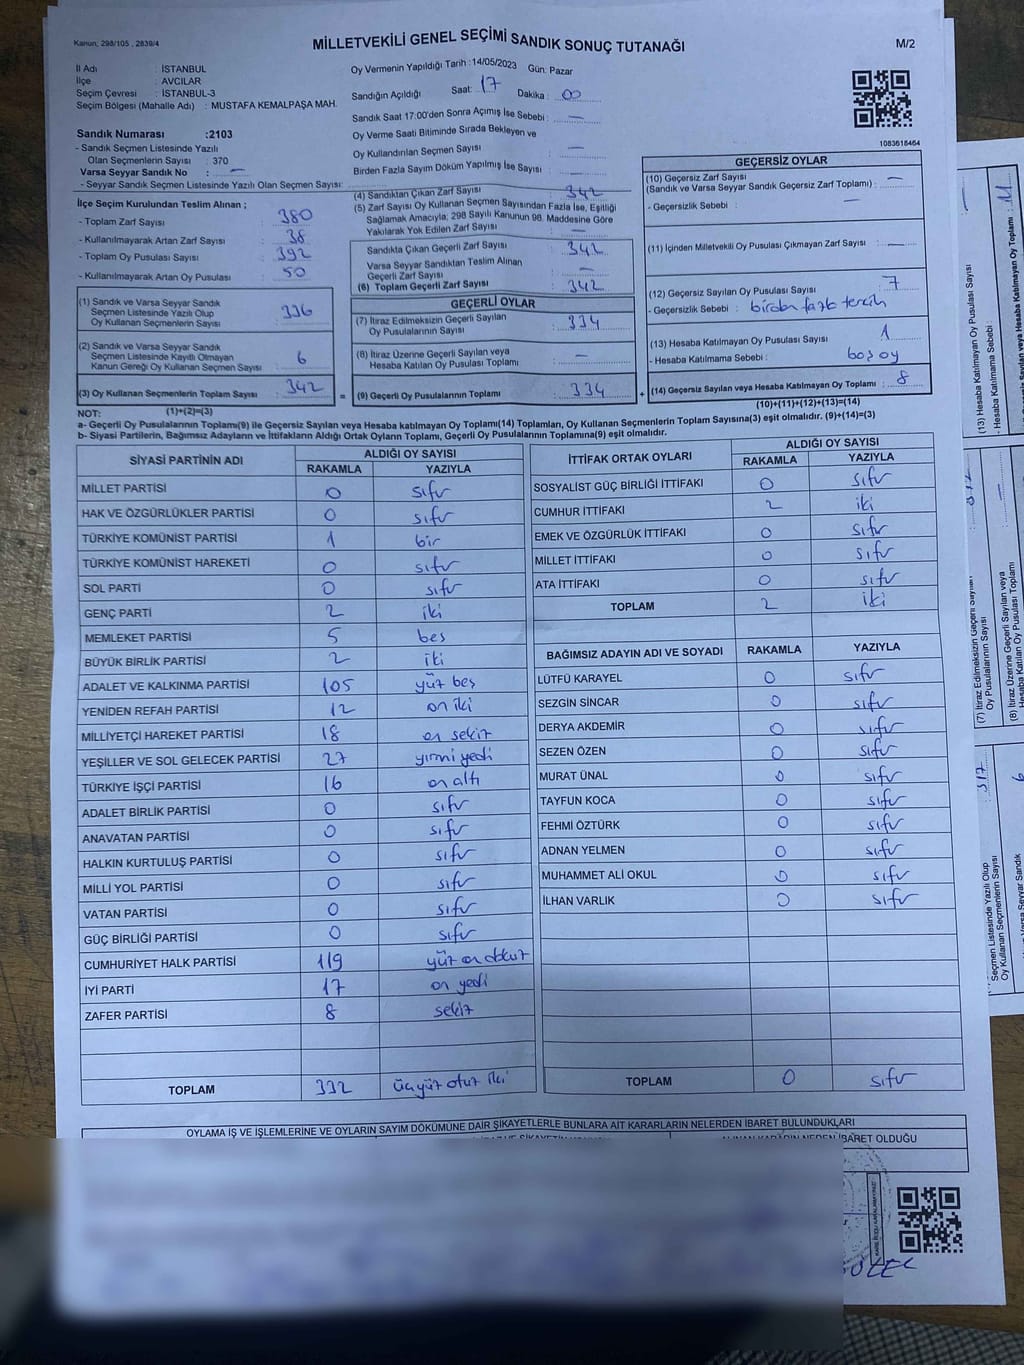 Kanun; 298/105 , 2839/4
MİLLETVEKİLİ GENEL SEÇİMİ SANDIK SONUÇ TUTANAĞI
M/2
İl Adı : İSTANBUL
İlçe : AVCILAR
Seçim Çevresi : İSTANBUL-3
Seçim Bölgesi (Mahalle Adı) : MUSTAFA KEMALPAŞA MAH.
Oy Vermenin Yapıldığı Tarih :14/05/2023 Gün: Pazar
Sandığın Açıldığı Saat: 17 Dakika : 00
Sandık Saat 17:00'den Sonra Açımış İse Sebebi : —
Oy Verme Saati Bitiminde Sırada Bekleyen ve
Oy Kullandırılan Seçmen Sayısı : —
Birden Fazla Sayım Döküm Yapılmış İse Sayısı : —
1083618464
Sandık Numarası :2103
- Sandık Seçmen Listesinde Yazılı
Olan Seçmenlerin Sayısı : 370
Varsa Seyyar Sandık No : —
- Seyyar Sandık Seçmen Listesinde Yazılı Olan Seçmen Sayısı:
İlçe Seçim Kurulundan Teslim Alınan ;
- Toplam Zarf Sayısı : 380
- Kullanılmayarak Artan Zarf Sayısı : 38
- Toplam Oy Pusulası Sayısı : 392
- Kullanılmayarak Artan Oy Pusulası : 50
(1) Sandık ve Varsa Seyyar Sandık
Seçmen Listesinde Yazılı Olup
Oy Kullanan Seçmenlerin Sayısı : 336
(2) Sandık ve Varsa Seyyar Sandık
Seçmen Listesinde Kayıtlı Olmayan
Kanun Gereği Oy Kullanan Seçmen Sayısı : 6
(3) Oy Kullanan Seçmenlerin Toplam Sayısı : 342 =
(4) Sandıktan Çıkan Zarf Sayısı : 342
(5) Zarf Sayısı Oy Kullanan Seçmen Sayısından Fazla İse, Eşitliği
Sağlamak Amacıyla; 298 Sayılı Kanunun 98. Maddesine Göre
Yakılarak Yok Edilen Zarf Sayısı : —
Sandıkta Çıkan Geçerli Zarf Sayısı : 342
Varsa Seyyar Sandıktan Teslim Alınan
Geçerli Zarf Sayısı : —
(6) Toplam Geçerli Zarf Sayısı : 342
GEÇERLİ OYLAR
(7) İtiraz Edilmeksizin Geçerli Sayılan
Oy Pusulalarının Sayısı : 334
(8) İtiraz Üzerine Geçerli Sayılan veya
Hesaba Katılan Oy Pusulası Toplamı : —
(9) Geçerli Oy Pusulalarının Toplamı : 334 +
GEÇERSİZ OYLAR
(10) Geçersiz Zarf Sayısı
(Sandık ve Varsa Seyyar Sandık Geçersiz Zarf Toplamı) : —
- Geçersizlik Sebebi : —
(11) İçinden Milletvekili Oy Pusulası Çıkmayan Zarf Sayısı : —
(12) Geçersiz Sayılan Oy Pusulası Sayısı : 7
- Geçersizlik Sebebi : birden fazla tercih
(13) Hesaba Katılmayan Oy Pusulası Sayısı : 1
- Hesaba Katılmama Sebebi : boş oy
(14) Geçersiz Sayılan veya Hesaba Katılmayan Oy Toplamı : 8
NOT: (1)+(2)=(3)
(10)+(11)+(12)+(13)=(14)
a- Geçerli Oy Pusulalarının Toplamı(9) ile Geçersiz Sayılan veya Hesaba katılmayan Oy Toplamı(14) Toplamları, Oy Kullanan Seçmenlerin Toplam Sayısına(3) eşit olmalıdır. (9)+(14)=(3)
b- Siyasi Partilerin, Bağımsız Adayların ve İttifakların Aldığı Ortak Oyların Toplamı, Geçerli Oy Pusulalarının Toplamına(9) eşit olmalıdır.
SİYASİ PARTİNİN ADI ALDIĞI OY SAYISI
RAKAMLA YAZIYLA
MİLLET PARTİSİ 0 sıfır
HAK VE ÖZGÜRLÜKLER PARTİSİ 0 sıfır
TÜRKİYE KOMÜNİST PARTİSİ 1 bir
TÜRKİYE KOMÜNİST HAREKETİ 0 sıfır
SOL PARTİ 0 sıfır
GENÇ PARTİ 2 iki
MEMLEKET PARTİSİ 5 beş
BÜYÜK BİRLİK PARTİSİ 2 iki
ADALET VE KALKINMA PARTİSİ 105 yüz beş
YENİDEN REFAH PARTİSİ 12 on iki
MİLLİYETÇİ HAREKET PARTİSİ 18 on sekiz
YEŞİLLER VE SOL GELECEK PARTİSİ 27 yirmi yedi
TÜRKİYE İŞÇİ PARTİSİ 16 on altı
ADALET BİRLİK PARTİSİ 0 sıfır
ANAVATAN PARTİSİ 0 sıfır
HALKIN KURTULUŞ PARTİSİ 0 sıfır
MİLLİ YOL PARTİSİ 0 sıfır
VATAN PARTİSİ 0 sıfır
GÜÇ BİRLİĞİ PARTİSİ 0 sıfır
CUMHURİYET HALK PARTİSİ 119 yüz on dokuz
İYİ PARTİ 17 on yedi
ZAFER PARTİSİ 8 sekiz
TOPLAM 332 üçyüz otuz iki
İTTİFAK ORTAK OYLARI ALDIĞI OY SAYISI
RAKAMLA YAZIYLA
SOSYALİST GÜÇ BİRLİĞİ İTTİFAKI 0 sıfır
CUMHUR İTTİFAKI 2 iki
EMEK VE ÖZGÜRLÜK İTTİFAKI 0 sıfır
MİLLET İTTİFAKI 0 sıfır
ATA İTTİFAKI 0 sıfır
TOPLAM 2 iki
BAĞIMSIZ ADAYIN ADI VE SOYADI RAKAMLA YAZIYLA
LÜTFÜ KARAYEL 0 sıfır
SEZGİN SİNCAR 0 sıfır
DERYA AKDEMİR 0 sıfır
SEZEN ÖZEN 0 sıfır
MURAT ÜNAL 0 sıfır
TAYFUN KOCA 0 sıfır
FEHMİ ÖZTÜRK 0 sıfır
ADNAN YELMEN 0 sıfır
MUHAMMET ALİ OKUL 0 sıfır
İLHAN VARLIK 0 sıfır
TOPLAM 0 sıfır
OYLAMA İŞ VE İŞLEMLERİNE VE OYLARIN SAYIM DÖKÜMÜNE DAİR ŞİKAYETLERLE BUNLARA AİT KARARLARIN NELERDEN İBARET BULUNDUKLARI
İBARET OLDUĞU
(13) Hesaba Katılmayan Oy Pusulası Sayısı
- Hesaba Katılmama Sebebi :
(7) İtiraz Edilmeksizin Geçerli Sayılan
Oy Pusulalarının Sayısı
(8) İtiraz Üzerine Geçerli Sayılan veya
Hesaba Katılan Oy Pusulası Toplamı
317
Seçmen Listesinde Yazılı Olup
Oy Kullanan Seçmenlerin Sayısı